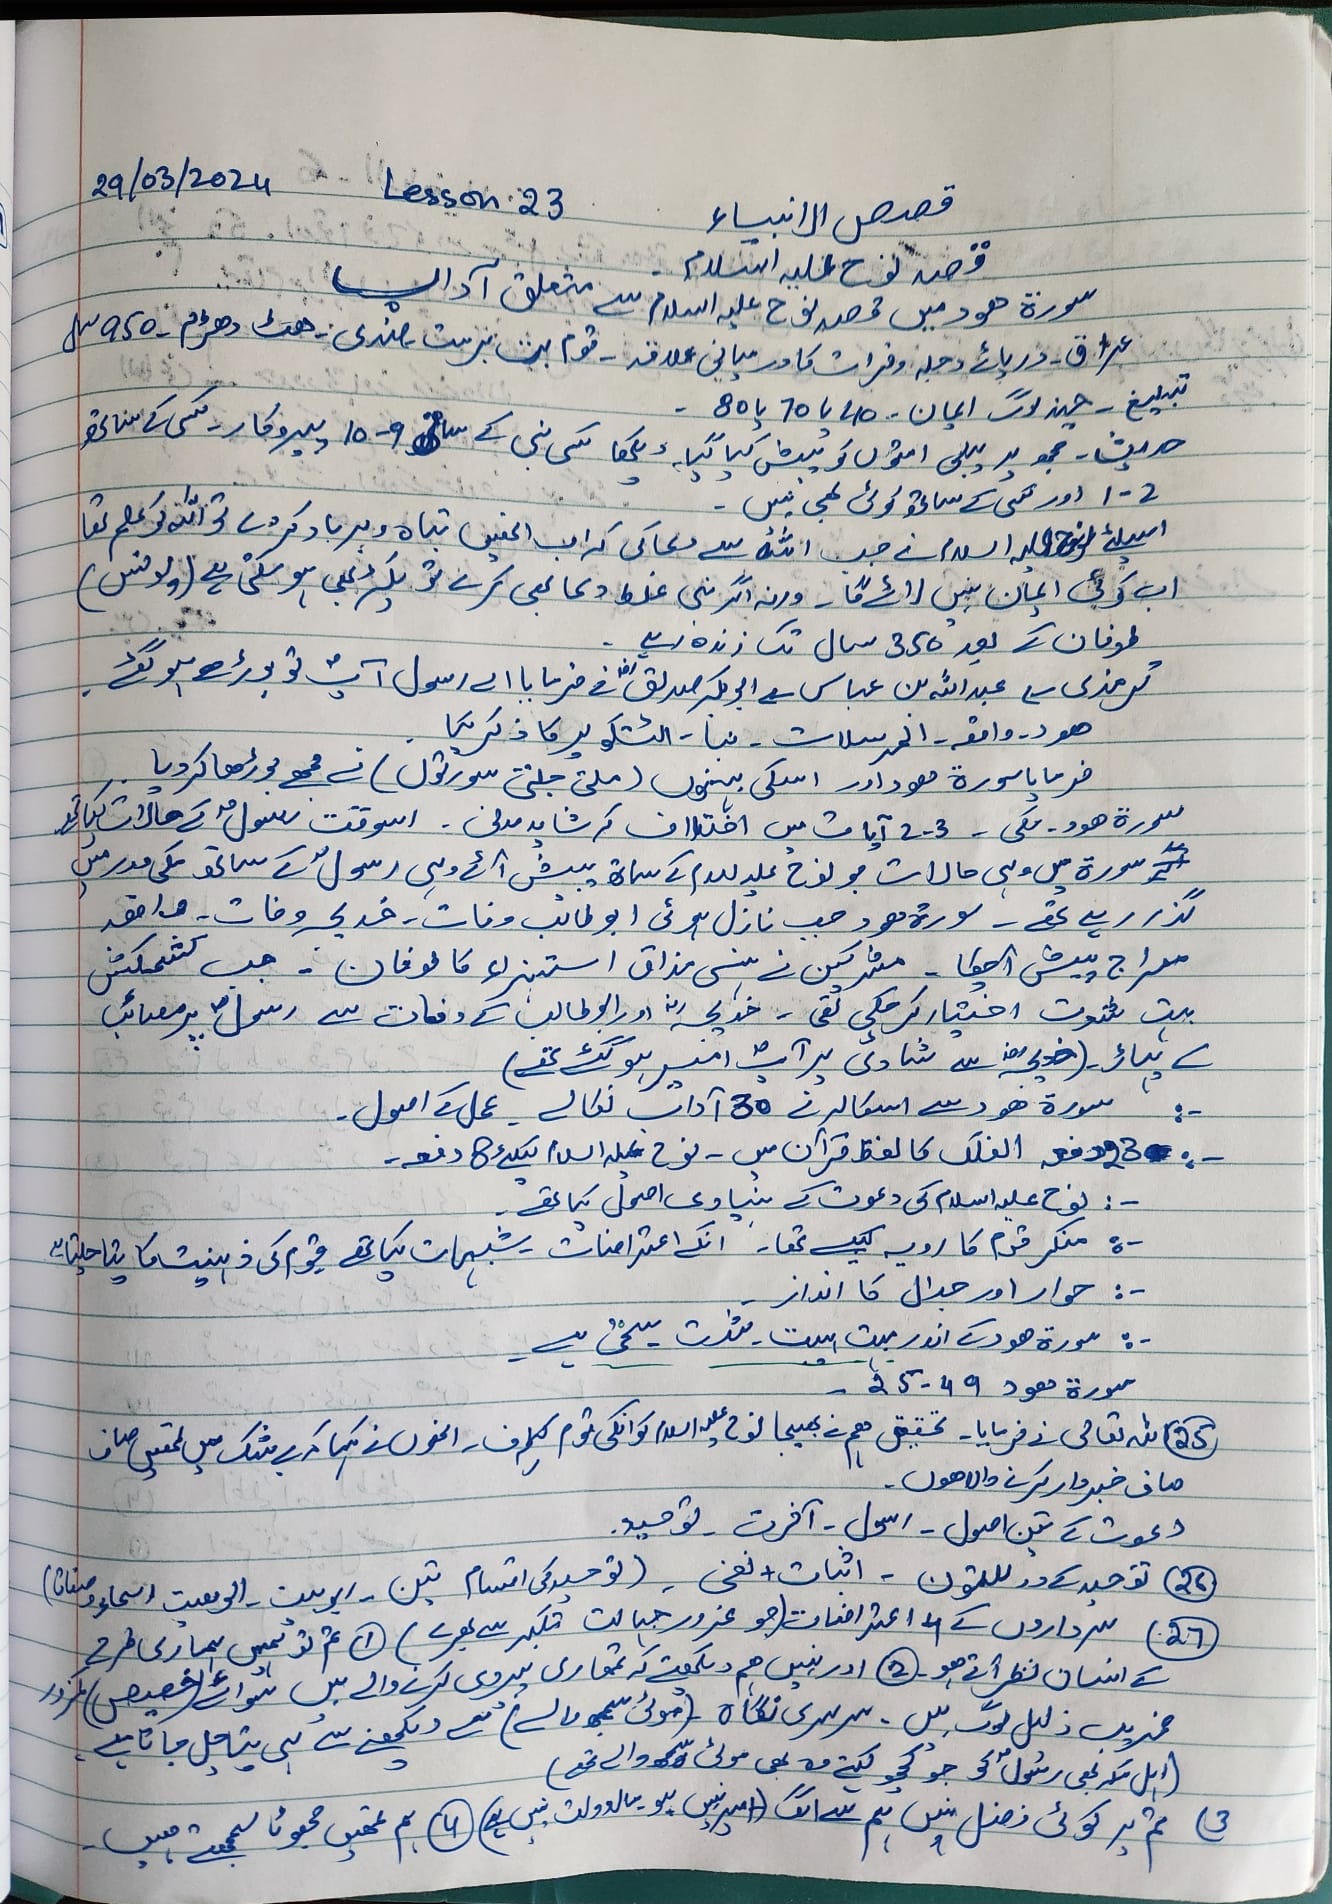 29/03/2024 Lesson: 23 قصص الانبیاء
قصہ نوح علیہ السلام -
سورۃ ھود میں قصہ نوح علیہ السلام سے متعلق آداب
عراق - دریائے دجلہ و فرات کا درمیانی علاقہ - قوم بت پرست - ضدی - ھٹ دھرم - 950 سال
تبلیغ - چند لوگ ایمان - 40 یا 70 یا 80 -
حدیث - مجھ پر پہلی امتوں کو پیش کیا گیا - دیکھا کسی نبی کے ساتھ 9-10 پیروکار - کسی کے ساتھ
1-2 اور کسی کے ساتھ کوئی بھی نہیں -
اسلئے نوح علیہ السلام نے جب اللہ سے دعا کی کہ اب انھیں تباہ و برباد کر دے تو اللہ کو علم تھا
اب کوئی ایمان نہیں لائے گا - ورنہ اگر نبی غلط دعا بھی کرے تو پکڑ بھی ہو سکتی ہے (یونس)
طوفان کے بعد 350 سال تک زندہ رہے -
ترمذی سے عبداللہ بن عباس سے ابوبکر صدیقؓ نے فرمایا اے رسول آپؐ تو بوڑھے ہو گئے -
ھود - واقعہ - المرسلات - نبا - التکویر کا ذکر کیا -
فرمایا سورۃ ھود اور اسکی بہنوں (ملتی جلتی سورتوں) نے مجھے بوڑھا کر دیا -
سورۃ ھود - مکی - 2-3 آیات میں اختلاف کہ شاید مدنی - اسوقت رسولؐ کے حالات کیا تھے
سورۃ میں وہی حالات جو نوح علیہ السلام کے ساتھ پیش آئے وہی رسولؐ کے ساتھ مکی دور میں
گزر رہے تھے - سورۃ ھود جب نازل ہوئی ابو طالب وفات - خدیجہ وفات - واقعہ
معراج پیش آچکا - مشرکین نے ہنسی مذاق استہزاء کا طوفان - جب کشمکش
بہت شدت اختیار کر چکی تھی - خدیجہؓ اور ابو طالب کے وفات سے رسولؐ پر مصائب
کے پہاڑ - (خدیجہؓ سے شادی پر آپؐ امیر ہو گئے تھے)
:- سورۃ ھود سے اسکالر نے 30 آداب نکالے - عمل کے اصول -
:- 23 دفعہ الفلک کا لفظ قرآن میں - نوح علیہ السلام کیلئے 8 دفعہ -
:- نوح علیہ السلام کی دعوت کے بنیادی اصول کیا تھے -
:- منکر قوم کا رویہ کیسے تھا - انکے اعتراضات - شبہات کیا تھے قوم کی ذہنیت کا پتا چلتا ہے
:- حوار اور جدال کا انداز -
:- سورۃ ھود کے اندر بہت ہیبت - شدت - سختی ہے -
سورۃ ھود 49-25 -
(25) اللہ تعالی نے فرمایا - تحقیق ہم نے بھیجا نوح علیہ السلام کو انکی قوم کیطرف - انھوں نے کہا کہ بے شک میں تمھیں صاف
صاف خبردار کرنے والا ھوں -
دعوت کے تین اصول - رسول - آخرت - توحید -
(26) توحید کے دو ستون - اثبات + نفی - (توحید کی اقسام تین - ربوبیت - الوھیت اسماء و صفات)
(27) سرداروں کے 4 اعتراضات (جو غرور جہالت تکبر سے بھرے) (1) تم تو ہمیں ہماری طرح
کے انسان نظر آتے ھو - (2) اور نہیں ھم دیکھتے کہ تمھاری پیروی کرنے والے ہیں سوائے (خسیس) کمزور
غریب ذلیل لوگ ہیں - سرسری نگاہ (موٹی سمجھ والے) سے دیکھنے سے ہی پتا چل جاتا ہے -
(اہل مکہ بھی رسولؐ کو جو کچھ کہتے وہ بھی موٹی سمجھ والے تھے)
(3) تم پر کوئی فضل نہیں ہم سے الگ (امیر نہیں ہو - مال و دولت نہیں ہے) (4) ہم تمھیں جھوٹا سمجھتے ہیں -